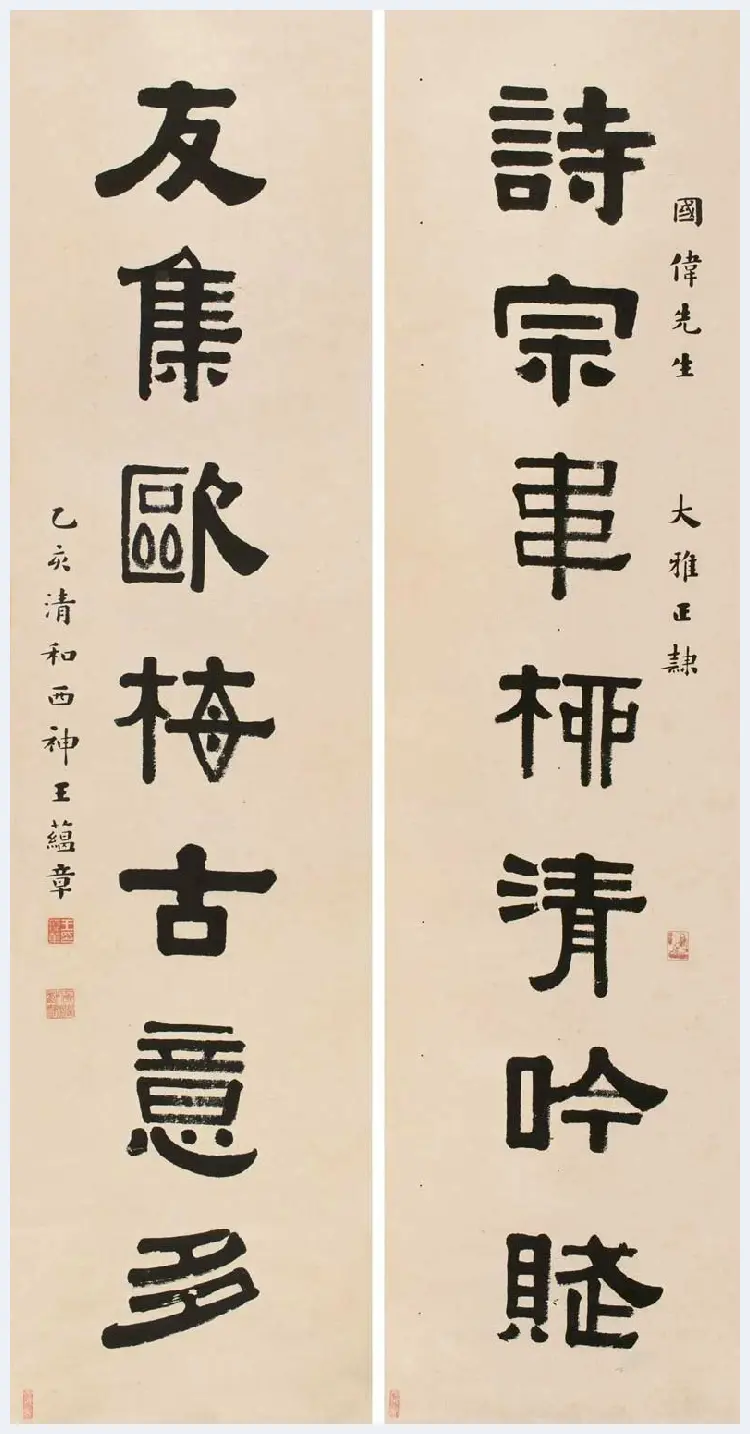 國偉先生 大雅正隸
詩宗韋柳清吟賦
友集歐梅古意多
乙亥清和西神王蘊章